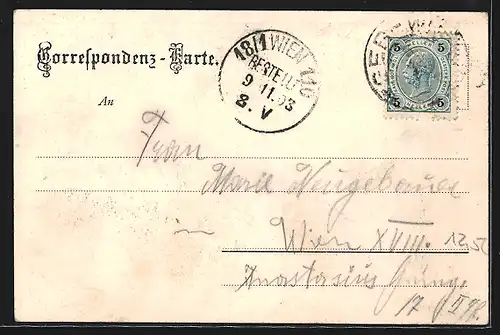 Correspondenz-Karte.
18/1 WIEN 110
BESTELLT
9 11.03
8. V
5 HELLER 5
5 5
An
Frau
Marie Neugebauer
in
Wien XVIII. 12,52
Anastasius Grüng.
17